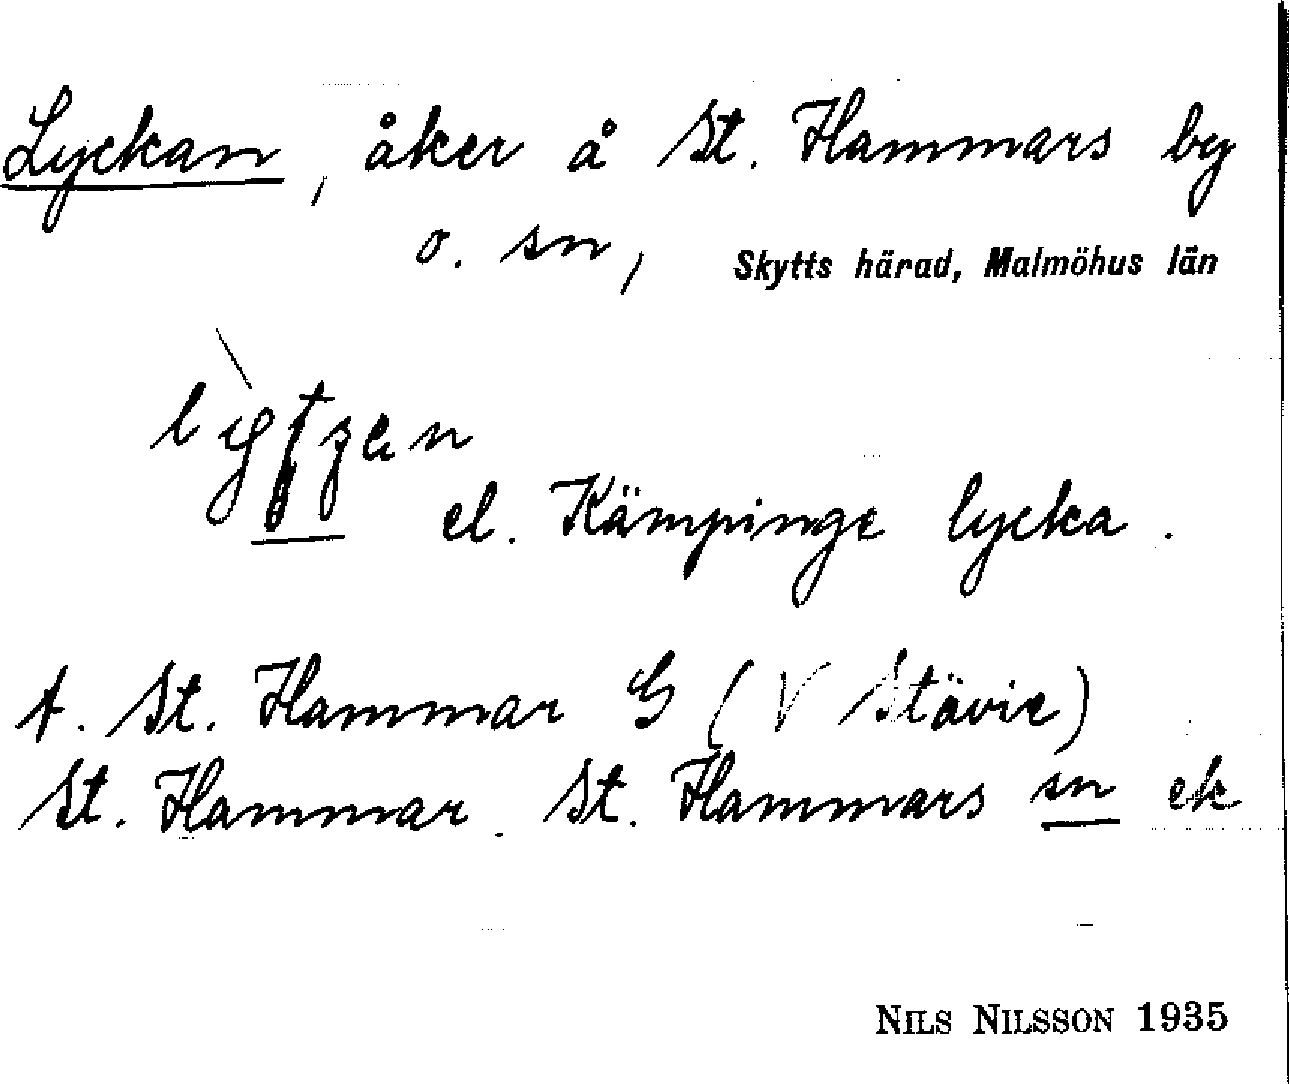 Lyckan, åker å St. Hammars by
o. sn, Skytts härad, Malmöhus län
el. Kämpinge lycka.
t. St. Hammar G (V Stävie)
St. Hammar. St. Hammars sn ek
NILS NILSSON 1935